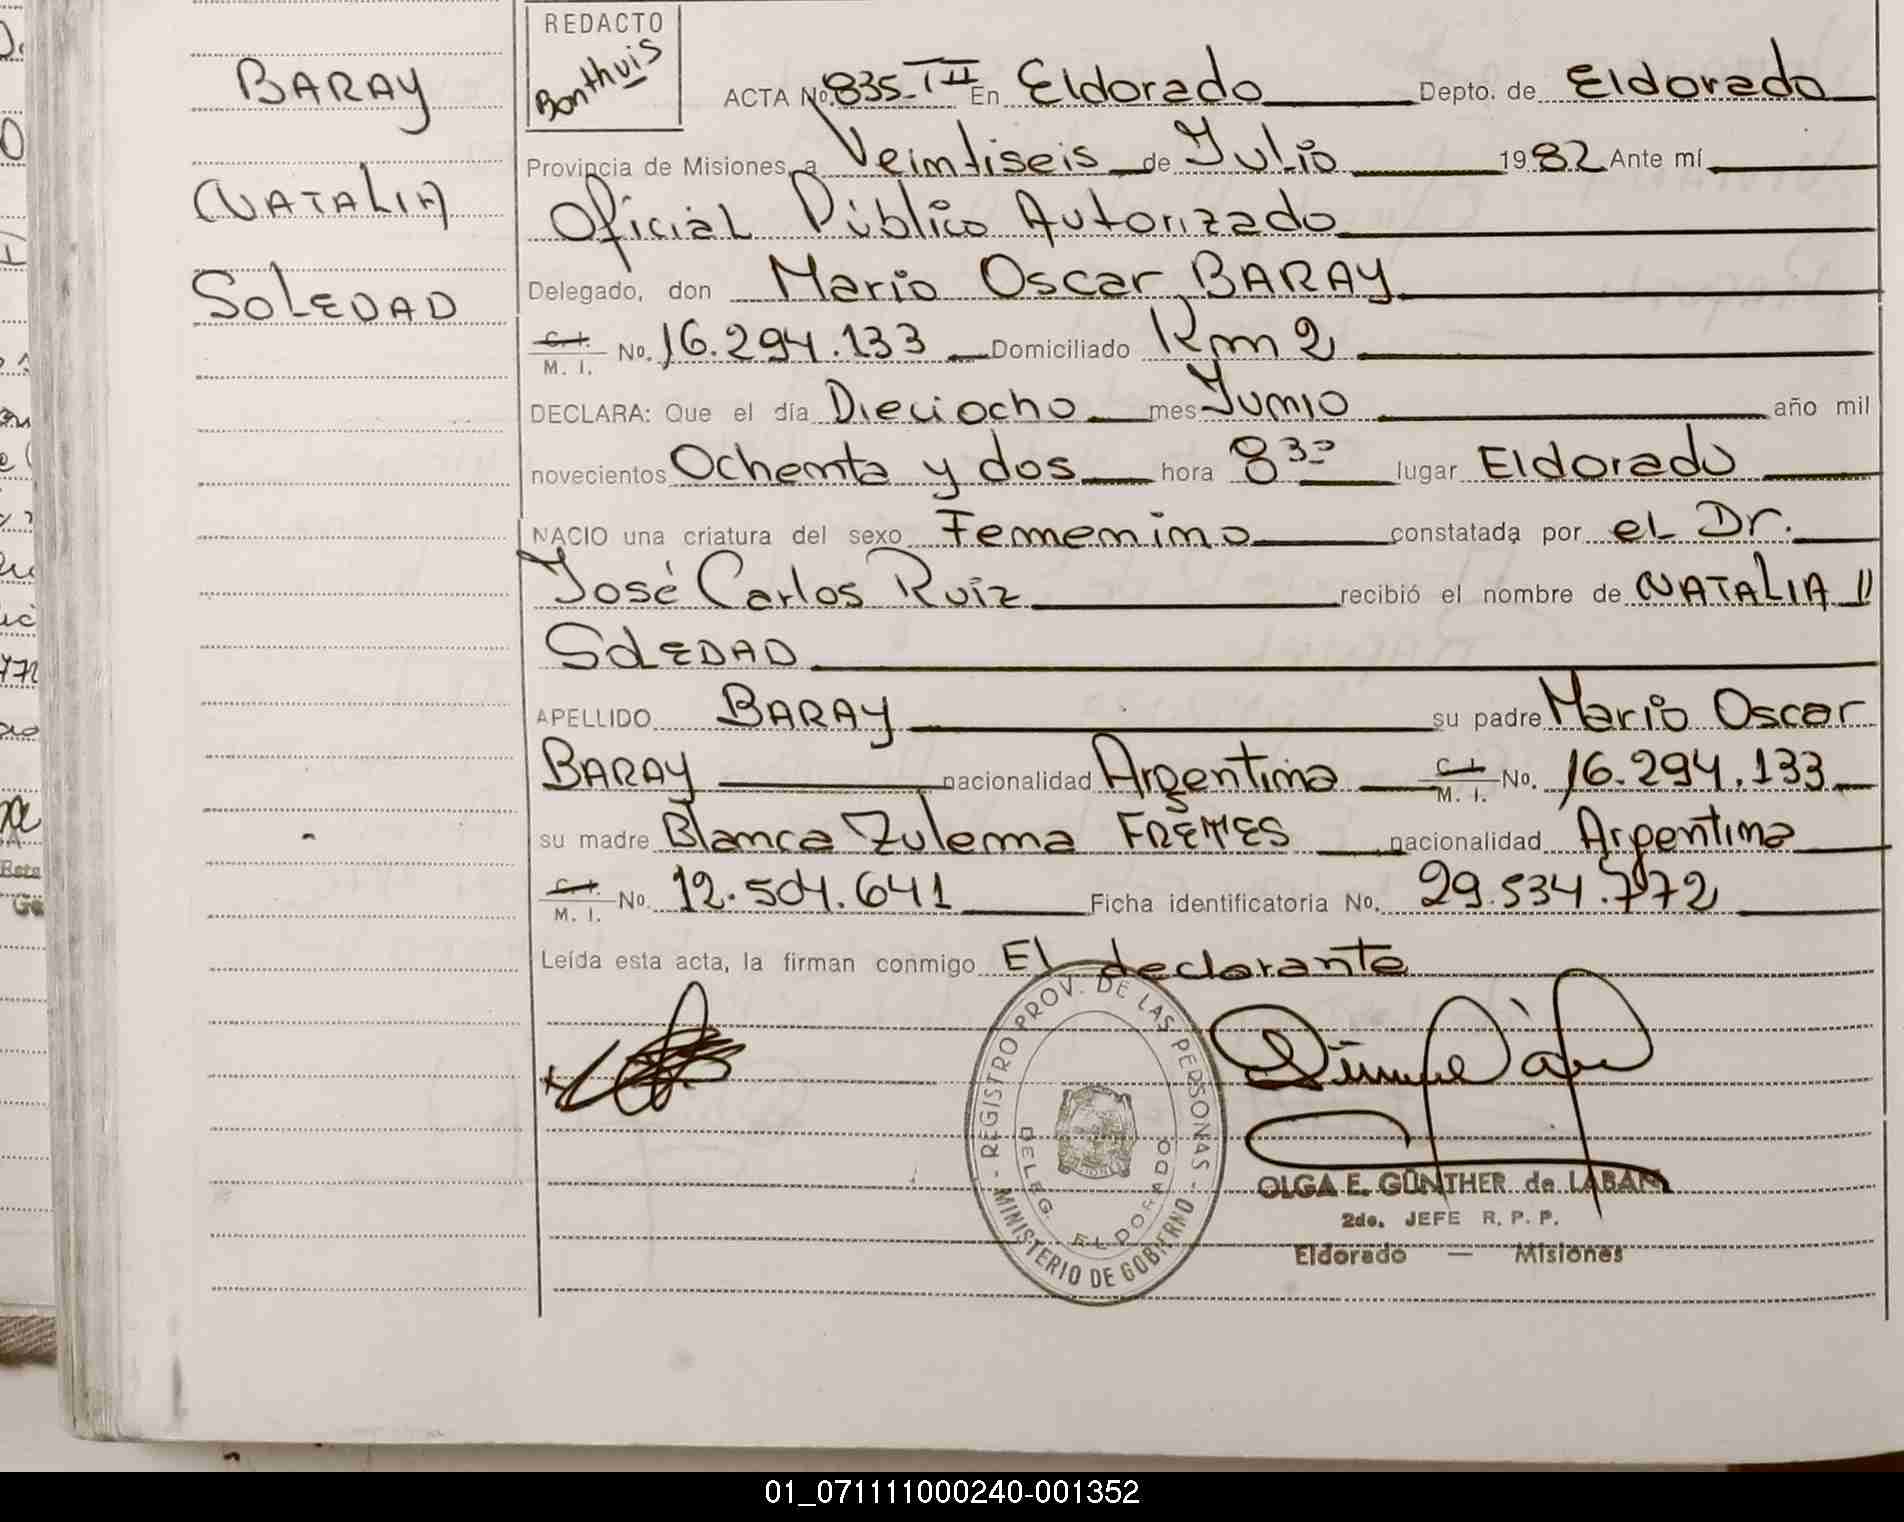 BARAY
NATALIA
SOLEDAD
REDACTO
Bonthuis
ACTA No. 835-TII En Eldorado Depto. de Eldorado
Provincia de Misiones, a Veintiseis de Julio 1982 Ante mí
Oficial Público Autorizado
Delegado, don Mario Oscar BARAY
C. I. M. I. No. 16.294.133 Domiciliado Km 2
DECLARA: Que el día Dieciocho mes Junio año mil
novecientos Ochenta y dos hora 8 30 lugar Eldorado
NACIO una criatura del sexo Femenino constatada por el Dr.
José Carlos Ruiz recibió el nombre de NATALIA
SOLEDAD
APELLIDO BARAY su padre Mario Oscar
BARAY nacionalidad Argentina C. I. M. I. No. 16.294.133
su madre Blanca Zulema nacionalidad Argentina
C. I. M. I. No. 12.504.641 Ficha identificatoria No. 29.534.772
Leída esta acta, la firman conmigo El declarante
- REGISTRO PROV. DE LAS PERSONAS -
MINISTERIO DE GOBIERNO
DELEG. ELDORADO
OLGA E. GÜNTHER de LABAN
2do. JEFE R. P. P.
Eldorado — Misiones
01_071111000240-001352